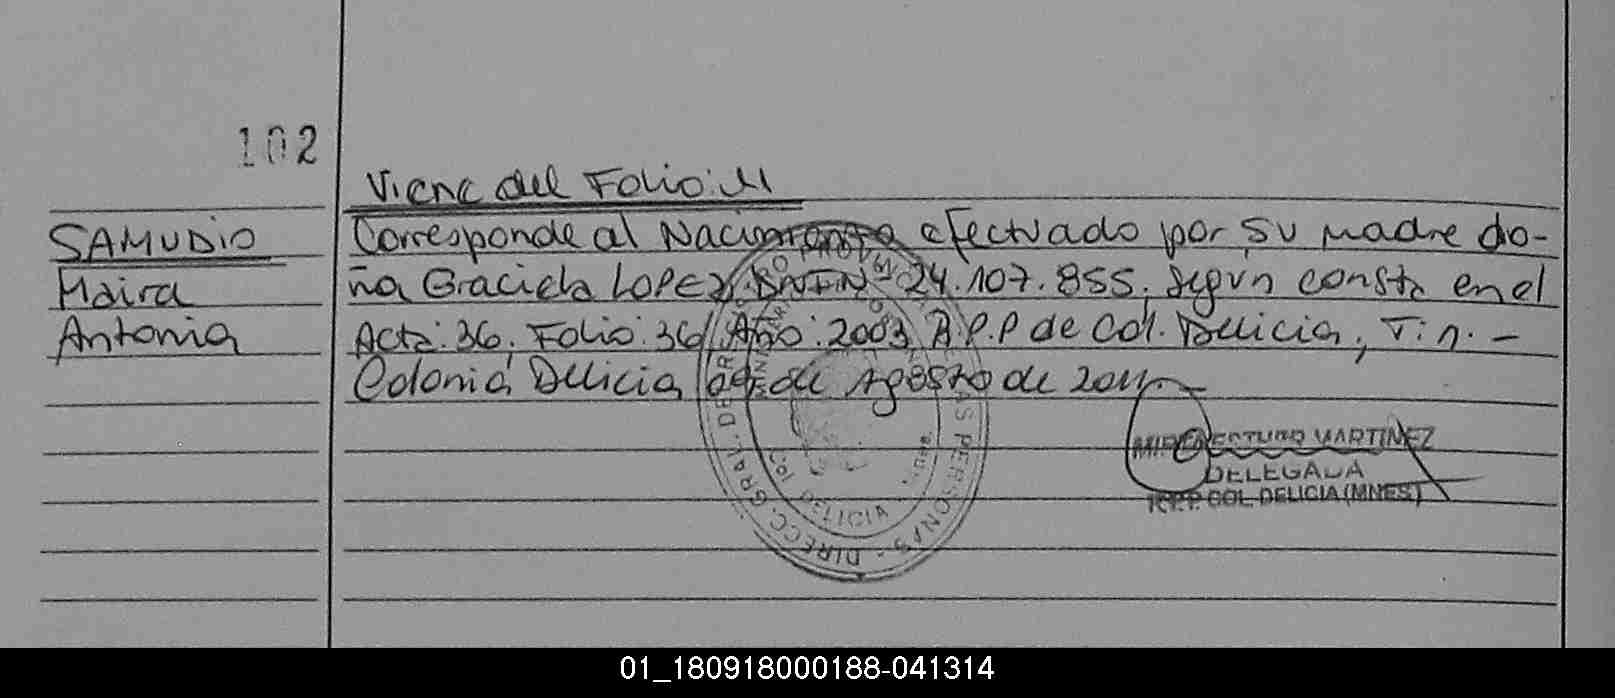 102
Viene del Folio: 
SAMUDIO
Maira
Antonia
Corresponde al Nacimiento efectuado por su madre do-
ña Graciela LOPEZ, DNI Nº 24.107.855, según consta en el
Acta: 36, Folio: 36, Año: 2003 R.P.P de Col. Delicia, T: n. -
Colonia Delicia, 09 de Agosto de 2011
MARTINEZ
DELEGADA
R.P.P. COL. DELICIA (MNES)
DIRECC. GRAL. DE LAS PERSONAS
COL. DELICIA
01_180918000188-041314